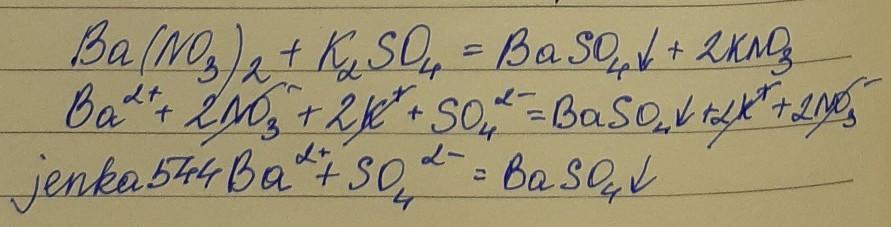 Ba(NO₃)₂ + K₂SO₄ = BaSO₄↓ + 2KNO₃
Ba²⁺ + 2NO₃⁻ + 2K⁺ + SO₄²⁻ = BaSO₄↓ + 2K⁺ + 2NO₃⁻
jenka544Ba²⁺ + SO₄²⁻ = BaSO₄↓